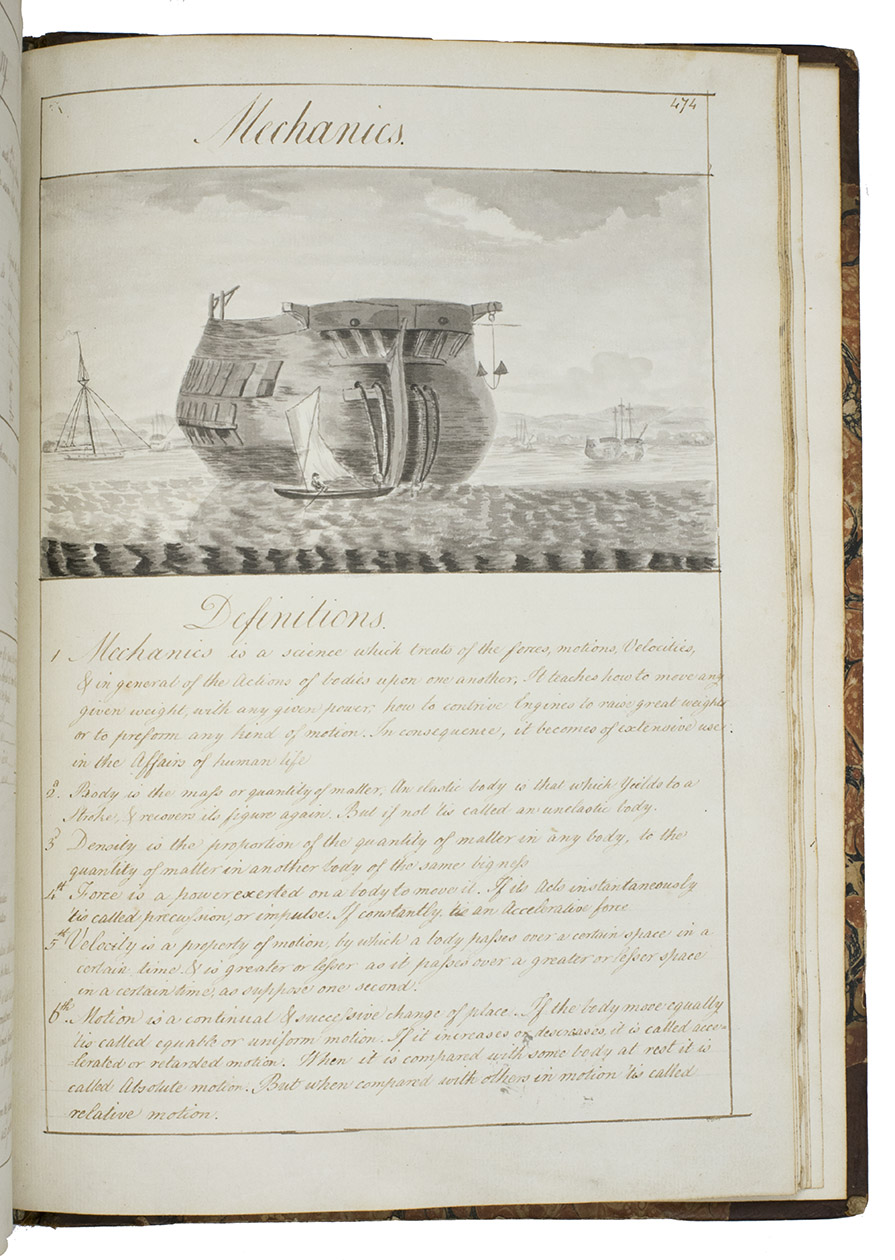 474
Mechanics.
Definitions.
1 Mechanics is a science which treats of the forces, motions, Velocities,
& in general of the Actions of bodies upon one another; It teaches how to move any
given weight, with any given power; how to contrive Engines to raise great weights
or to preform any kind of motion. In consequence, it becomes of extensive use
in the Affairs of human life
2.d Boody is the mass or quantity of matter, An elastic body is that which Yields to a
Stroke, & recovers its figure again. But if not 'tis called an unelastic body.
3 Density is the proportion of the quantity of matter in any body, to the
quantity of matter in another body of the same bigness
4th Force is a power exerted on a body to move it. If its Acts instantaneously
'tis called precussion, or impulse. If constantly, tis an Accelerative force
5th Velocity is a property of motion, by which a body passes over a certain space in a
certain time & is greater or lesser as it passes over a greater or lesser space
in a certain time, as suppose one second.
6th. Motion is a continual & successive change of place. If the body move equally
'tis called equable or uniform motion. If it increases or decreases, it is called acce-
-lerated or retarded motion. When it is compared with some body at rest it is
called Absolute motion. But when compared with others in motion 'tis called
relative motion.